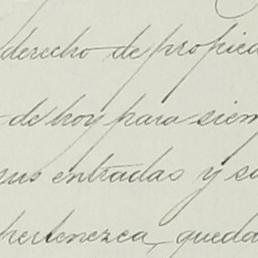 derecho de propieda
de hoy para siem
sus entradas y sa
pertenezca, queda